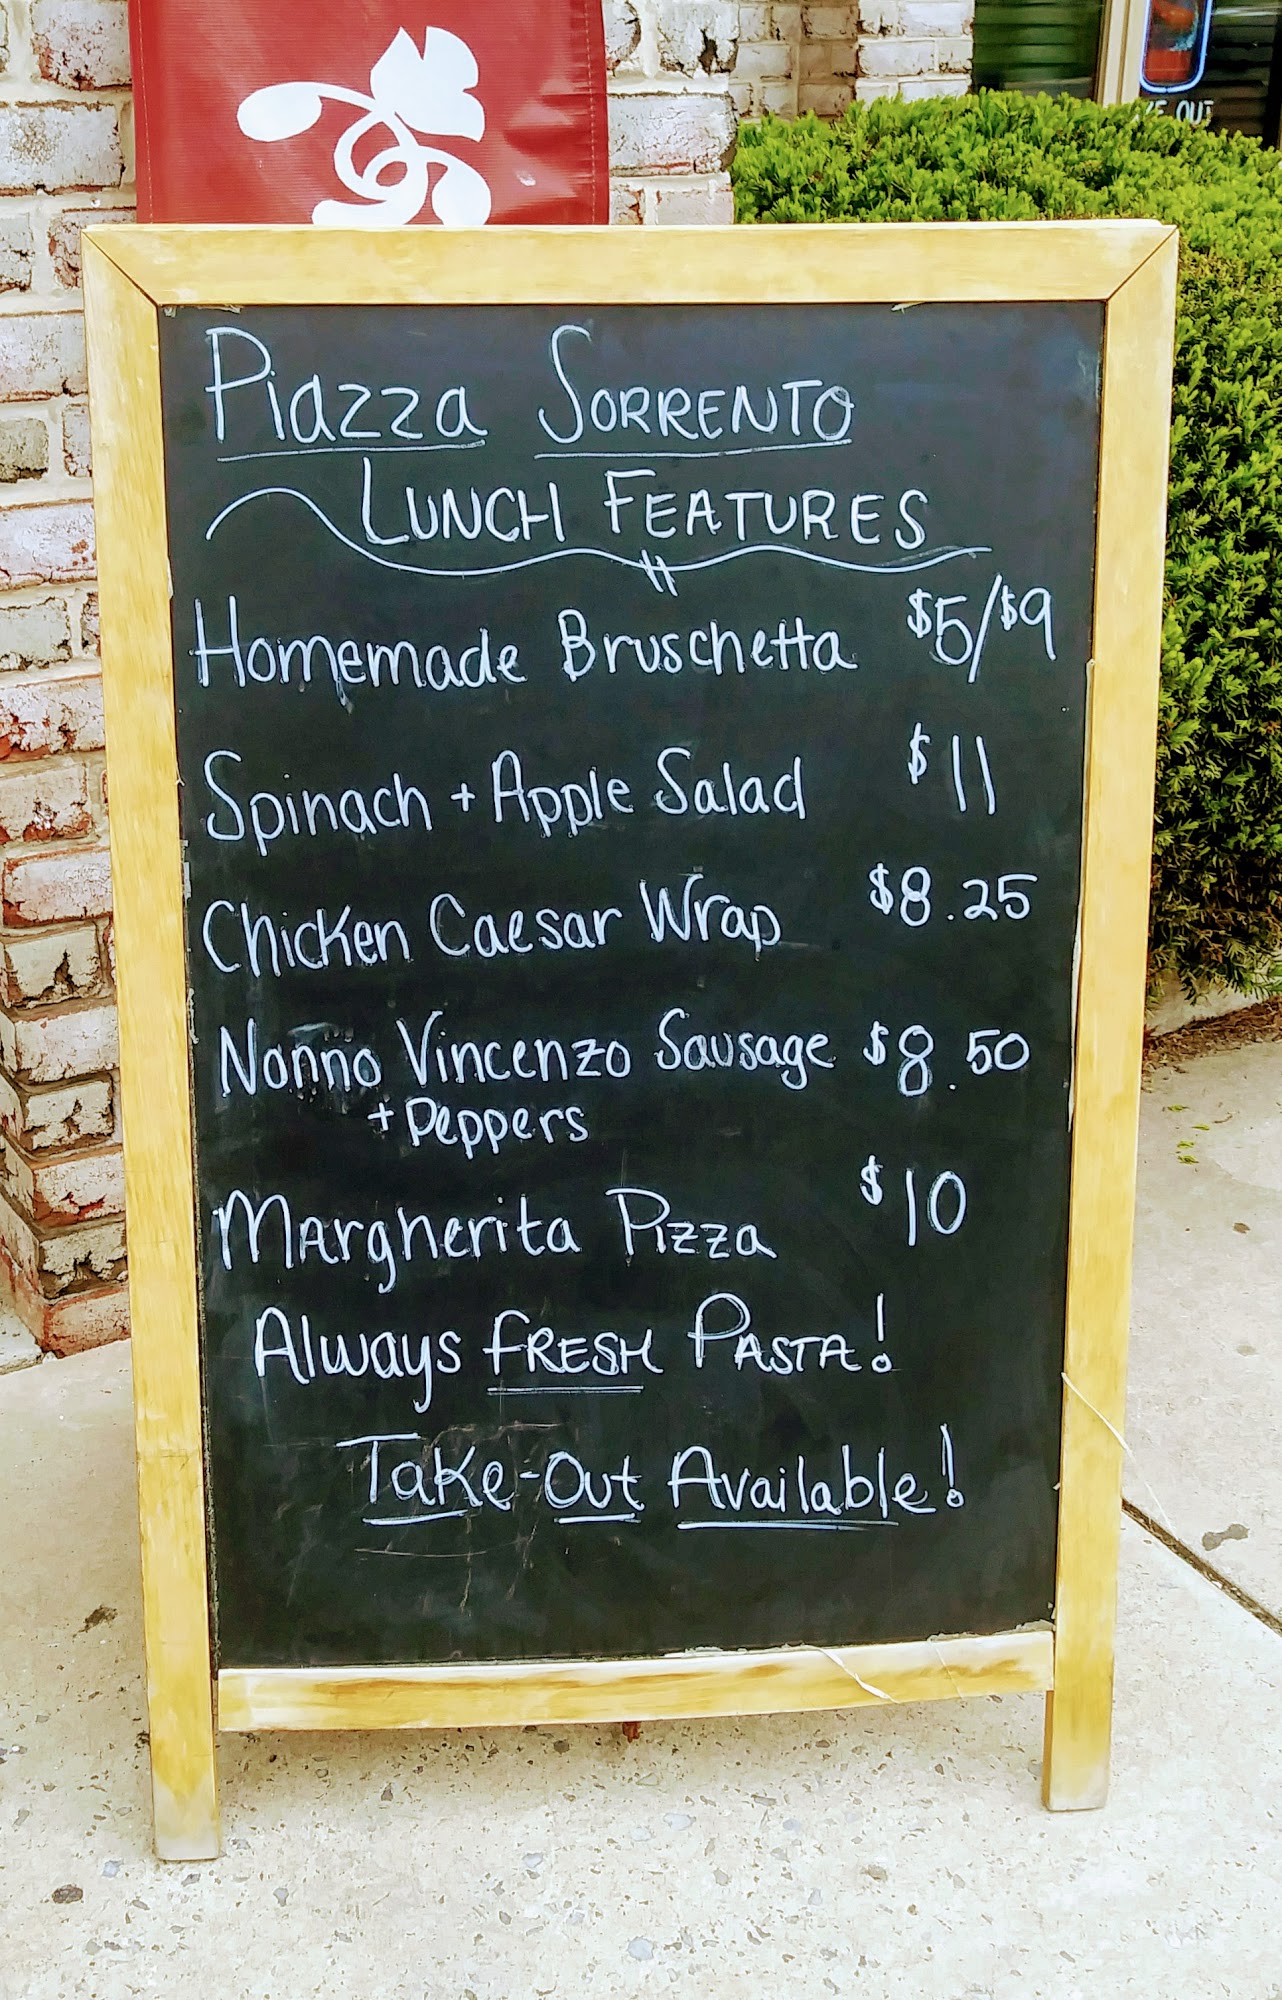 Piazza Sorrento
Lunch Features
Homemade Bruschetta $5/$9
Spinach + Apple Salad $11
Chicken Caesar Wrap $8.25
Nonno Vincenzo Sausage $8.50
+ Peppers
Margherita Pizza $10
Always FRESH Pasta!
Take-Out Available!
OUT